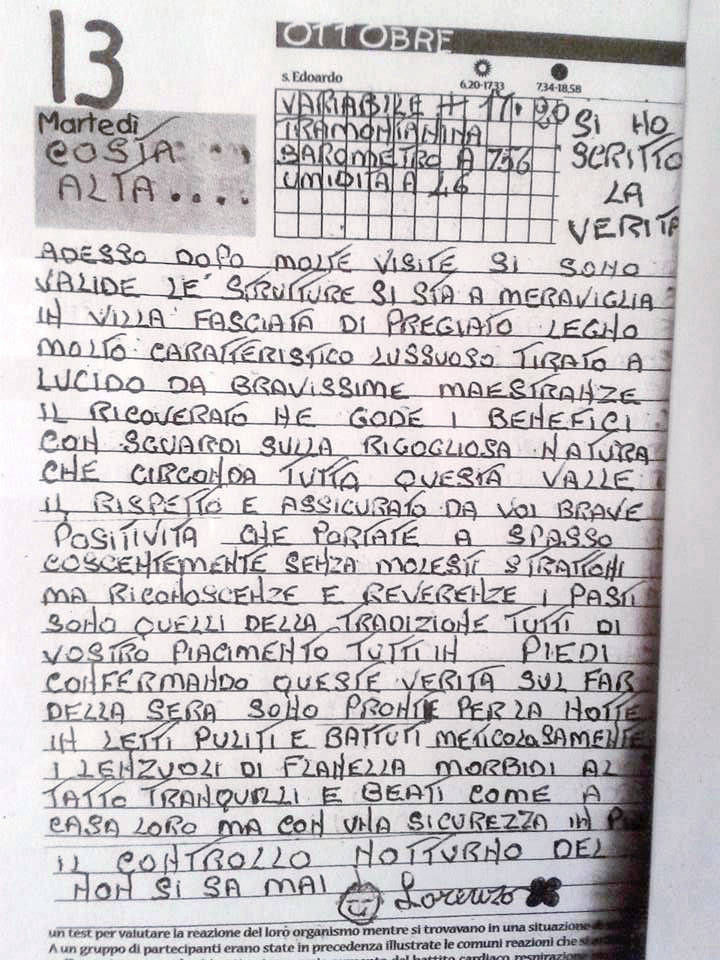 13
Martedì
COSTA
ALTA....
OTTOBRE
s. Edoardo
6,20-17,33
7,34-18,58
VARIABILE + 17.20
TRAMONTANINA
BAROMETRO A 756
UMIDITA A 46
SI HO
SCRITTO
LA
VERITA
ADESSO DOPO MOLTE VISITE SI SONO
VALIDE LE' STRUTTURE SI STA A MERAVIGLIA
IN VILLA FASCIATA DI PREGIATO LEGNO
MOLTO CARATTERISTICO LUSSUOSO TIRATO A
LUCIDO DA BRAVISSIME MAESTRANZE
IL RICOVERATO NE GODE I BENEFICI
CON SGUARDI SULLA RIGOGLIOSA NATURA
CHE CIRCONDA TUTTA QUESTA VALLE
IL RISPETTO E ASSICURATO DA VOI BRAVE
POSITIVITA CHE PORTATE A SPASSO
COSCENTEMENTE SENZA MOLESTI STRATTONI
MA RICONOSCENZE E REVERENZE I PASTI
SONO QUELLI DELLA TRADIZIONE TUTTI DI
VOSTRO PIACIMENTO TUTTI IN PIEDI
CONFERMANDO QUESTE VERITA SUL FAR
DELLA SERA SONO PRONTE PER LA NOTTE
IN LETTI PULITI E BATTUTI METICOLOSAMENTE
I LENZUOLI DI FLANELLA MORBIDI AL
TATTO TRANQUILLI E BEATI COME A
CASA LORO MA CON UNA SICUREZZA IN
IL CONTROLLO NOTTURNO DEL
NON SI SA MAI Lorenzo
un test per valutare la reazione del loro organismo mentre si trovavano in una situazione
A un gruppo di partecipanti erano state in precedenza illustrate le comuni reazioni che si
battito cardiaco, respirazione